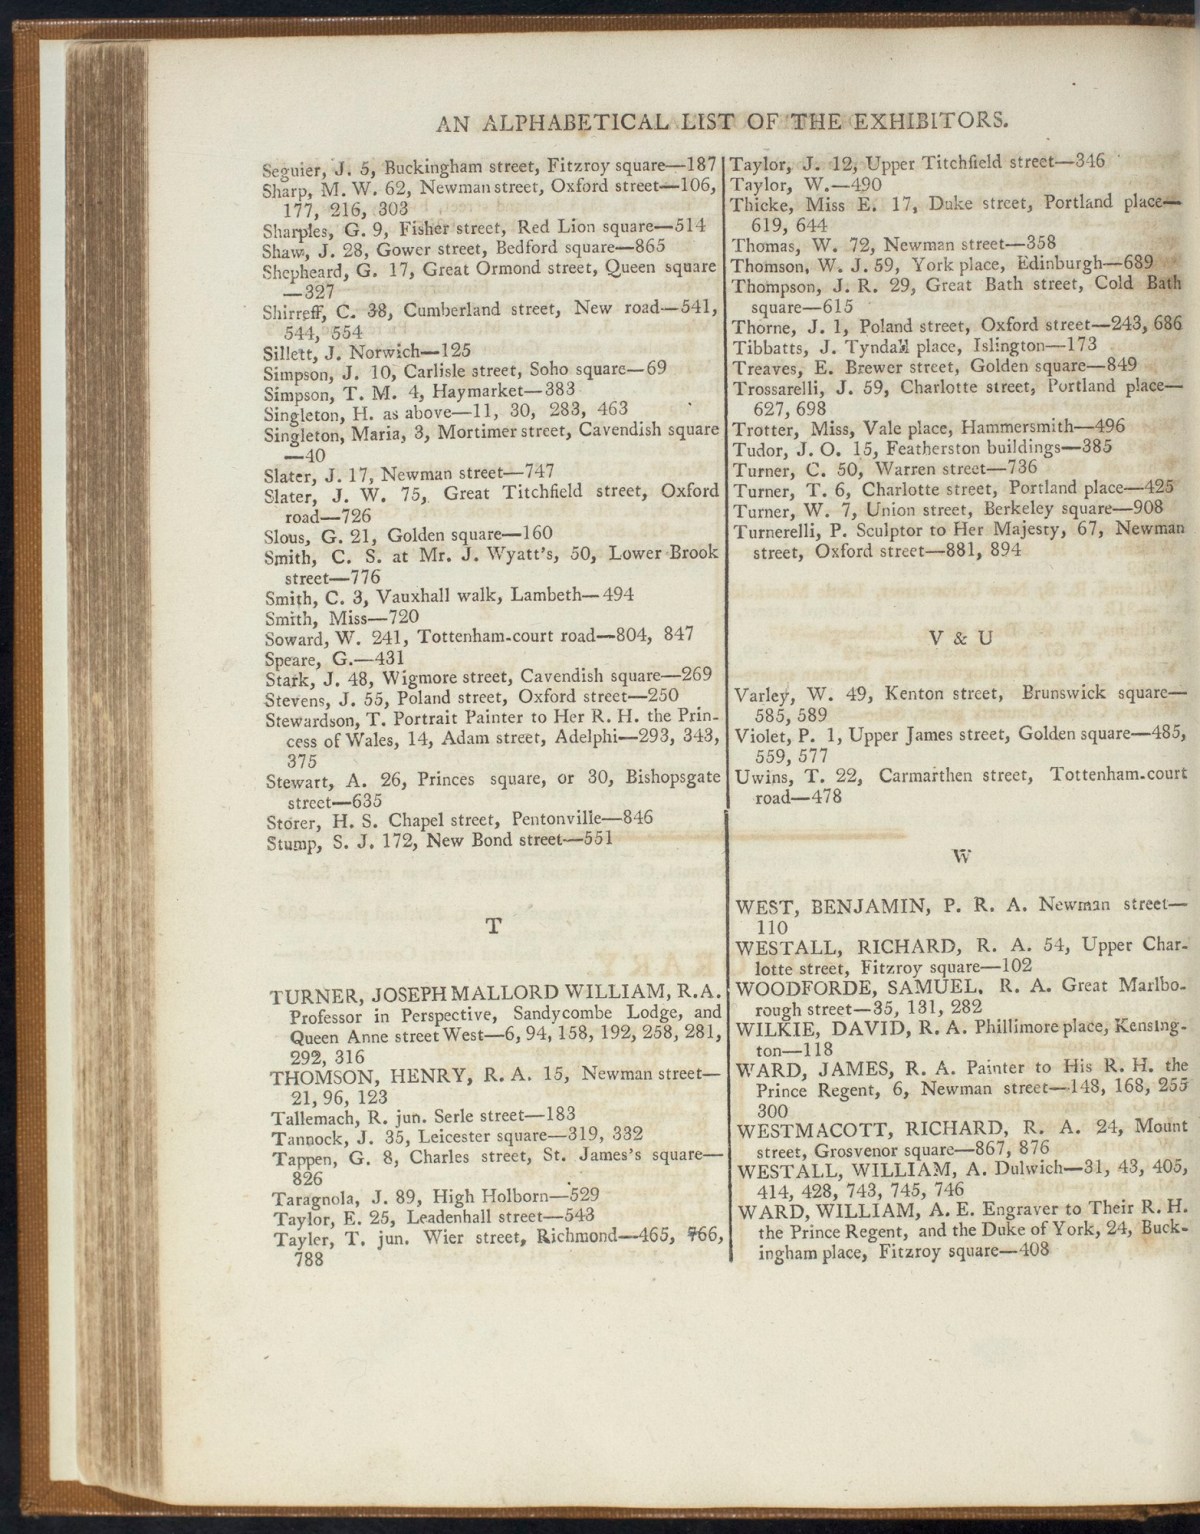 AN ALPHABETICAL LIST OF THE EXHIBITORS.
Seguier, J. 5, Buckingham street, Fitzroy square—187
Sharp, M. W. 62, Newman street, Oxford street—106,
177, 216, 303
Sharples, G. 9, Fisher street, Red Lion square—514
Shaw, J. 28, Gower street, Bedford square—865
Shepheard, G. 17, Great Ormond street, Queen square
—327
Shirreff, C. 38, Cumberland street, New road—541,
544, 554
Sillett, J. Norwich—125
Simpson, J. 10, Carlisle street, Soho square—69
Simpson, T. M. 4, Haymarket—383
Singleton, H. as above—11, 30, 283, 463
Singleton, Maria, 3, Mortimer street, Cavendish square
—40
Slater, J. 17, Newman street—747
Slater, J. W. 75, Great Titchfield street, Oxford
road—726
Slous, G. 21, Golden square—160
Smith, C. S. at Mr. J. Wyatt's, 50, Lower Brook
street—776
Smith, C. 3, Vauxhall walk, Lambeth—494
Smith, Miss—720
Soward, W. 241, Tottenham-court road—804, 847
Speare, G.—431
Stark, J. 48, Wigmore street, Cavendish square—269
Stevens, J. 55, Poland street, Oxford street—250
Stewardson, T. Portrait Painter to Her R. H. the Prin-
cess of Wales, 14, Adam street, Adelphi—293, 343,
375
Stewart, A. 26, Princes square, or 30, Bishopsgate
street—635
Storer, H. S. Chapel street, Pentonville—846
Stump, S. J. 172, New Bond street—551
T
TURNER, JOSEPH MALLORD WILLIAM, R.A.
Professor in Perspective, Sandycombe Lodge, and
Queen Anne street West—6, 94, 158, 192, 258, 281,
292, 316
THOMSON, HENRY, R. A. 15, Newman street—
21, 96, 123
Tallemach, R. jun. Serle street—183
Tannock, J. 35, Leicester square—319, 332
Tappen, G. 8, Charles street, St. James's square—
826
Taragnola, J. 89, High Holborn—529
Taylor, E. 25, Leadenhall street—543
Tayler, T. jun. Wier street, Richmond—465, 766,
788
Taylor, J. 12, Upper Titchfield street—346
Taylor, W.—490
Thicke, Miss E. 17, Duke street, Portland place—
619, 644
Thomas, W. 72, Newman street—358
Thomson, W. J. 59, York place, Edinburgh—689
Thompson, J. R. 29, Great Bath street, Cold Bath
square—615
Thorne, J. 1, Poland street, Oxford street—243, 686
Tibbatts, J. Tyndall place, Islington—173
Treaves, E. Brewer street, Golden square—849
Trossarelli, J. 59, Charlotte street, Portland place—
627, 698
Trotter, Miss, Vale place, Hammersmith—496
Tudor, J. O. 15, Featherston buildings—385
Turner, C. 50, Warren street—736
Turner, T. 6, Charlotte street, Portland place—425
Turner, W. 7, Union street, Berkeley square—908
Turnerelli, P. Sculptor to Her Majesty, 67, Newman
street, Oxford street—881, 894
V & U
Varley, W. 49, Kenton street, Brunswick square—
585, 589
Violet, P. 1, Upper James street, Golden square—485,
559, 577
Uwins, T. 22, Carmarthen street, Tottenham-court
road—478
W
WEST, BENJAMIN, P. R. A. Newman street—
110
WESTALL, RICHARD, R. A. 54, Upper Char-
lotte street, Fitzroy square—102
WOODFORDE, SAMUEL, R. A. Great Marlbo-
rough street—35, 131, 282
WILKIE, DAVID, R. A. Phillimore place, Kensing-
ton—118
WARD, JAMES, R. A. Painter to His R. H. the
Prince Regent, 6, Newman street—148, 168, 255
300
WESTMACOTT, RICHARD, R. A. 24, Mount
street, Grosvenor square—867, 876
WESTALL, WILLIAM, A. Dulwich—31, 43, 405,
414, 428, 743, 745, 746
WARD, WILLIAM, A. E. Engraver to Their R. H.
the Prince Regent, and the Duke of York, 24, Buck-
ingham place, Fitzroy square—408